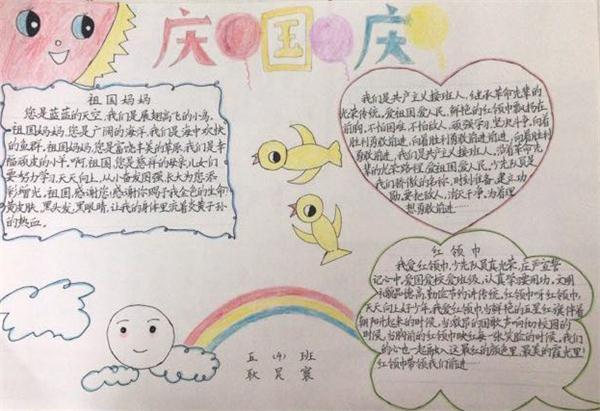 庆国庆
祖国妈妈
您是蓝蓝的天空,我们是展翅高飞的小鸟,
祖国妈妈,您是广阔的海洋,我们是海中欢快
的鱼群,祖国妈妈,您是富饶丰美的草原,我们是幸
福顽皮的小羊。啊,祖国,您是慈祥的母亲,儿女们
要努力学习,天天向上,从小奋发图强长大为您添
彩增光。祖国,感谢您,感谢你赐予我金色的生命
黄皮肤,黑头发,黑眼睛,让我的身体里流着炎黄子孙
的热血。
我们是共产主义接班人,继承革命先辈的
光荣传统,爱祖国,爱人民,鲜艳的红领巾飘扬在
前胸,不怕困难,不怕敌人,顽强学习,坚决斗争,向着
胜利勇敢前进,向着胜利勇敢前进前进,向着胜利
勇敢前进,我们是共产主义接班人,沿着革命先
辈的光荣路程,爱祖国,爱人民,少先队员是
我们骄傲的名称,时刻准备,建立功
勋,要把敌人,消灭干净,为着理
想勇敢前进……
红领巾
我爱红领巾,少先队员真光荣,庄严宣誓
记心中,爱国爱校爱班级,认真学习要用功,文明
礼貌品德高,勤俭节约讲传统,红领巾呀红领巾,
天天向上好少年,我爱红领巾,当鲜艳的五星红旗伴着
朝阳升起来的时候,当激昂的国歌声响彻校园的
时候,当胸前的红领巾映红每一张笑脸的时候,我们
的心也一起融入这最红的颜色里,最美的霞光里!
红领巾带领我们前进
五(4)班
耿昊